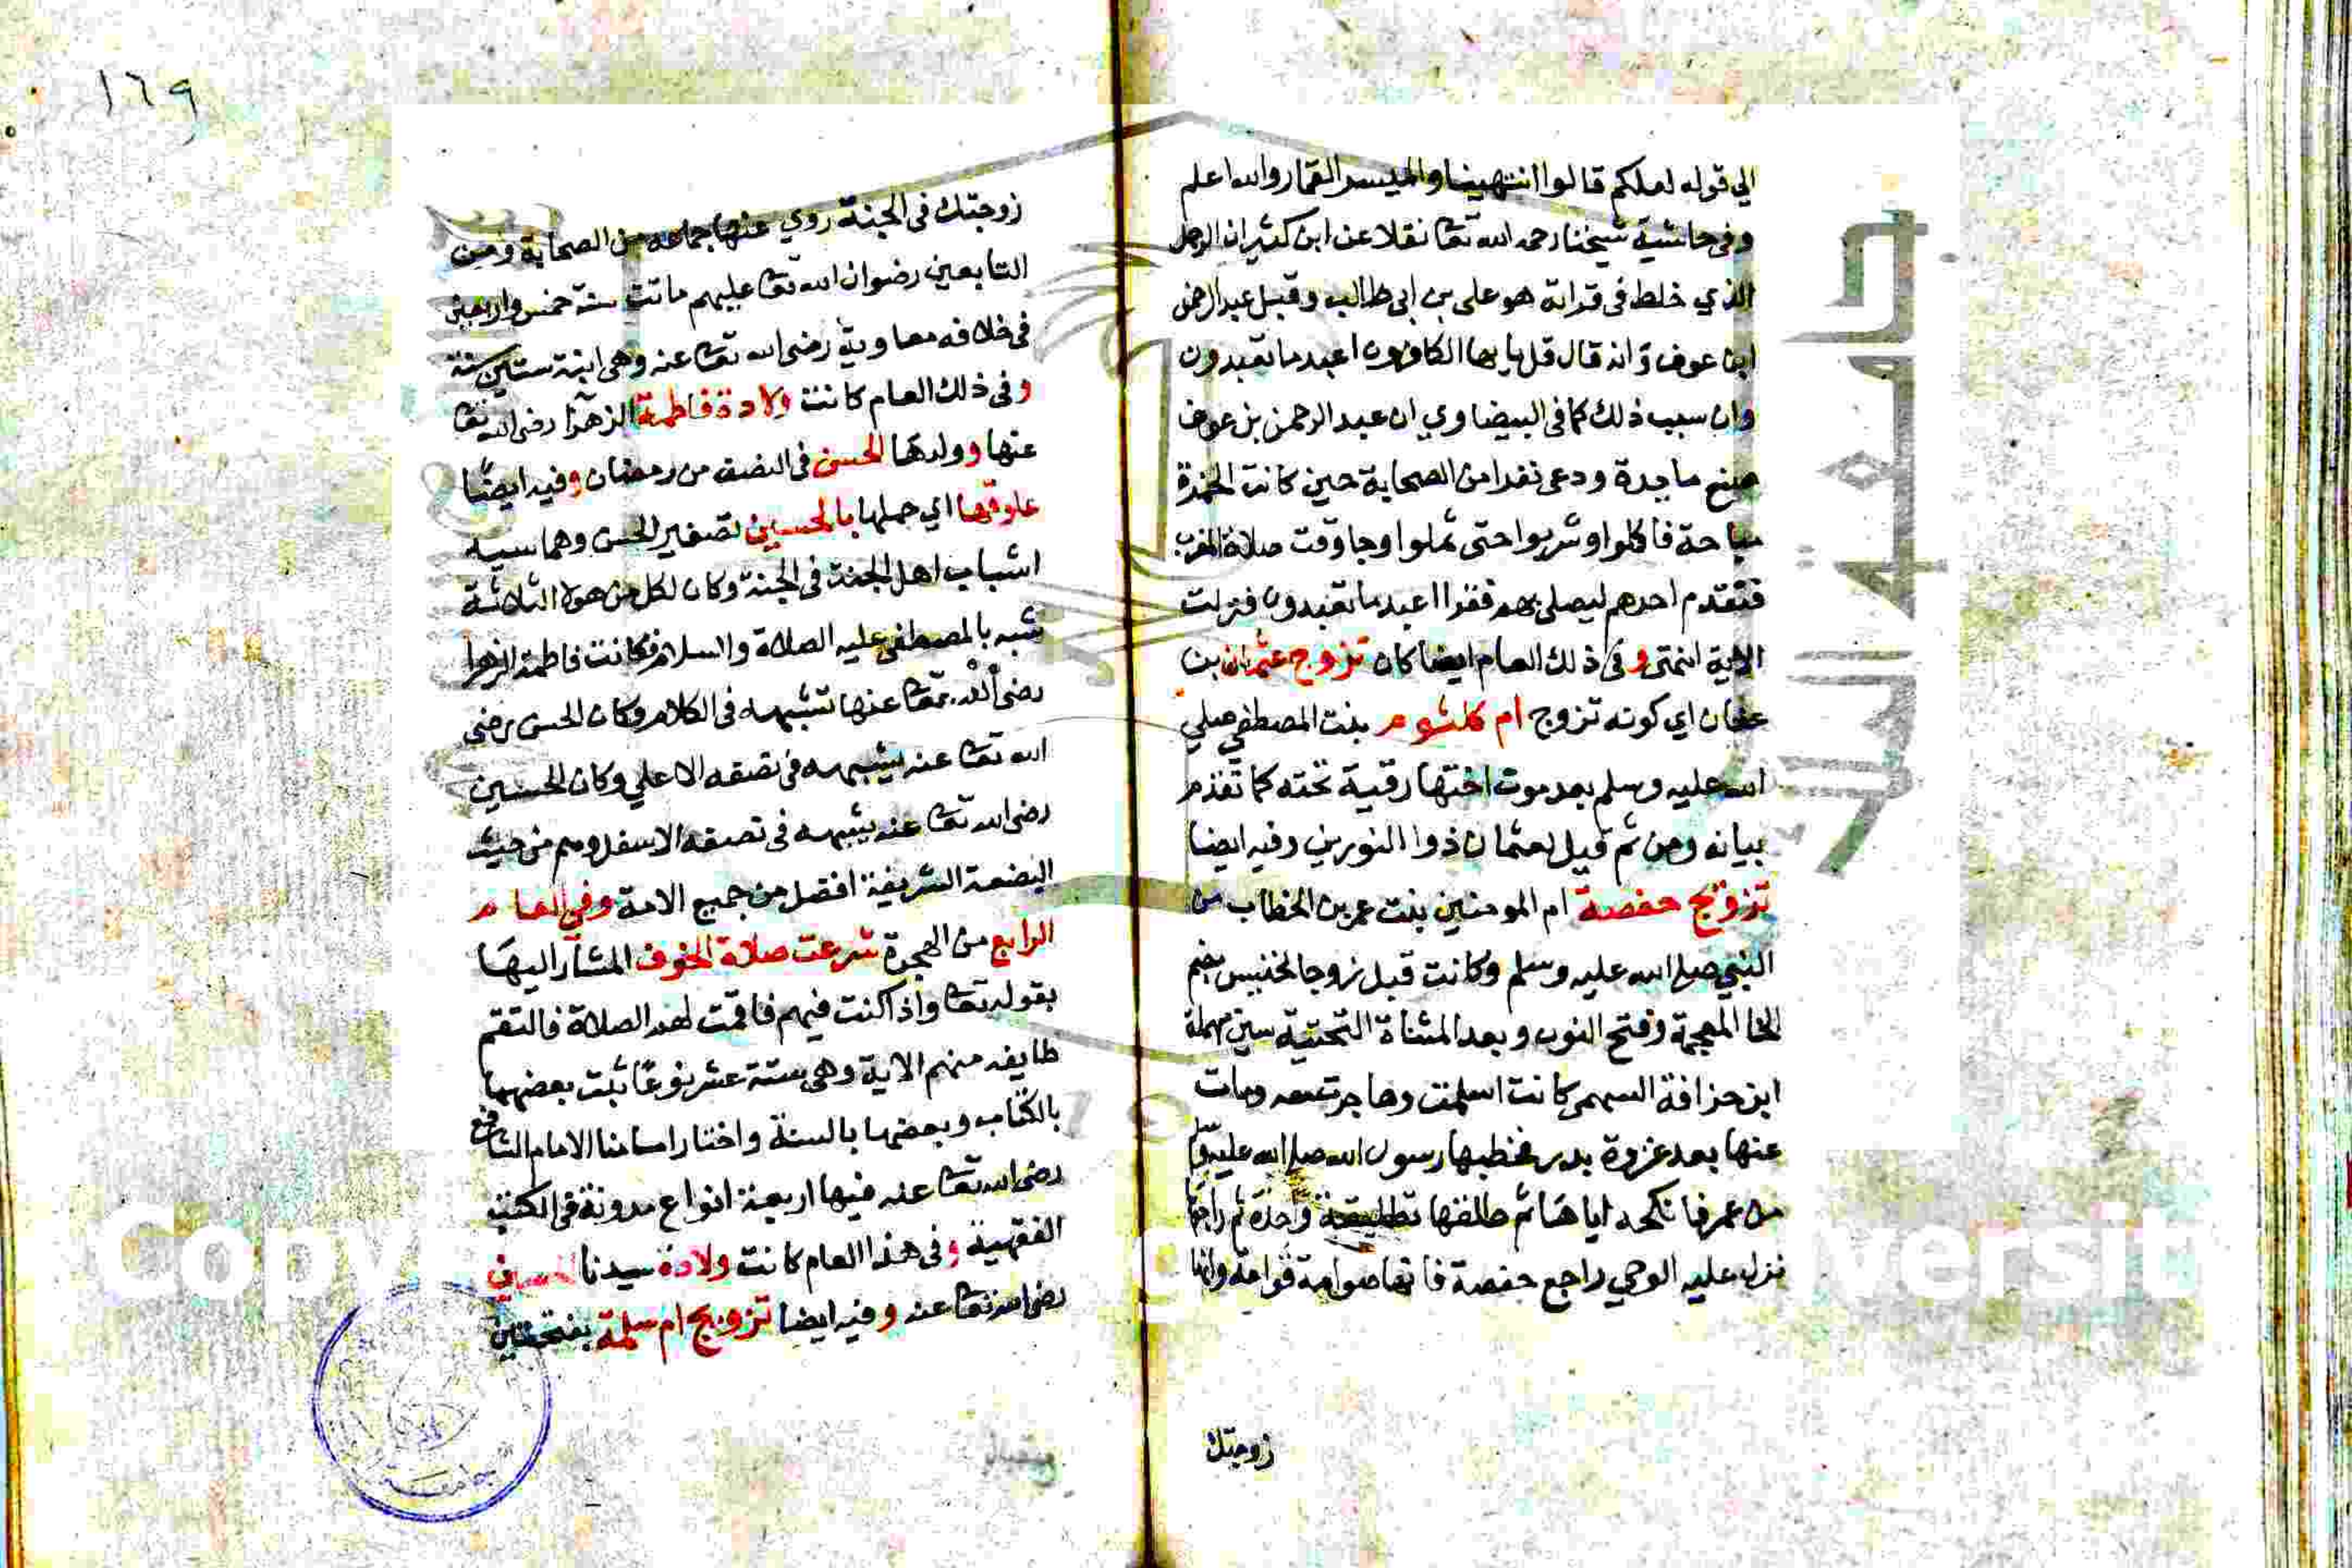 الي قوله لعلكم قالوا انتهينا والميسر القمار والله اعلم
وفى حاشية شيخنا رحمه الله تعا نقلا عن ابن كثير ان الرجل
الذي خلط فى قراته هو على بن ابى طالب وقيل عبد الرحمن
ابن عوف وانه قال قل يايها الكافرون اعبد ما تعبدون
وان سبب ذلك كما فى البيضاوي ان عبد الرحمن بن عوف
صنع مأدبة ودعى نفرا من الصحابة حين كانت الخمرة
مباحة فاكلوا وشربوا حتى ثملوا وجا وقت صلاة المغرب
فتقدم احدهم ليصلى بهم فقرا اعبد ما تعبدون فنزلت
الاية انتهى وفى ذلك العام ايضا كان تزوج عثمان بن
عفان اي كونه تزوج ام كلثوم بنت المصطفي صلي
الله عليه وسلم بعد موت اختها رقية تحته كما تقدم
بيانه ومن ثم قيل لعثمان ذوا النورين وفيه ايضا
تزويج حفصة ام المومنين بنت عمر بن الخطاب من
النبي صلى الله عليه وسلم وكانت قبل زوجا لخنيس بضم
الخا المعجمة وفتح النون وبعد المثناة التحتية سين مهملة
ابن حزافة السهمى كانت اسلمت وهاجرت معه ومات
عنها بعد غزوة بدر فخطبها رسول الله صلى الله عليه وسلم
من عمر فانكحه اياها ثم طلقها تطليقة واحدة ثم راجعها
نزل عليه الوحي راجع حفصة فانها صوامة قوامة وانها
زوجتك
١٦٩
زوجتك فى الجنة روي عنها جماعه من الصحابة ومن
التابعين رضوان الله تعا عليهم ماتت سنة خمس واربعين
فى خلافه معاوية رضى الله تعا عنه وهى ابنة ستين سنة
وفى ذلك العام كانت ولادة فاطمة الزهرا رضى الله تعا
عنها وولدها الحسن فى النصف من رمضان وفيه ايضا
علوقها اي حملها بالحسين تصغير الحسن وهما سيدا
اشباب اهل الجنة فى الجنة وكان لكل من هولا الثلاثة
شبه بالمصطفى عليه الصلاة والسلام فكانت فاطمة الزهرا
رضى الله تعا عنها تشبهه فى الكلام وكان الحسن رضى
الله تعا عنه يشبهه فى نصفه الاعلي وكان الحسين
رضى الله تعا عنه يشبهه فى نصفه الاسفل وهم من حيث
البضعة الشريفة افضل من جميع الامة وفى العام
الرابع من الهجرة شرعت صلاة الخوف المشار اليها
بقوله تعا واذا كنت فيهم فاقمت لهم الصلاة فالتقم
طايفه منهم الاية وهى ستة عشر نوعا ثبت بعضها
بالكتاب وبعضها بالسنة واختار امامنا الامام الشافع
رضى الله تعا عنه فيها اربعة انواع مدونة فى الكتب
الفقهية وفى هذا العام كانت ولادة سيدنا الحسين
رضى الله تعا عنه وفيه ايضا تزويج ام سلمة بفتحتين